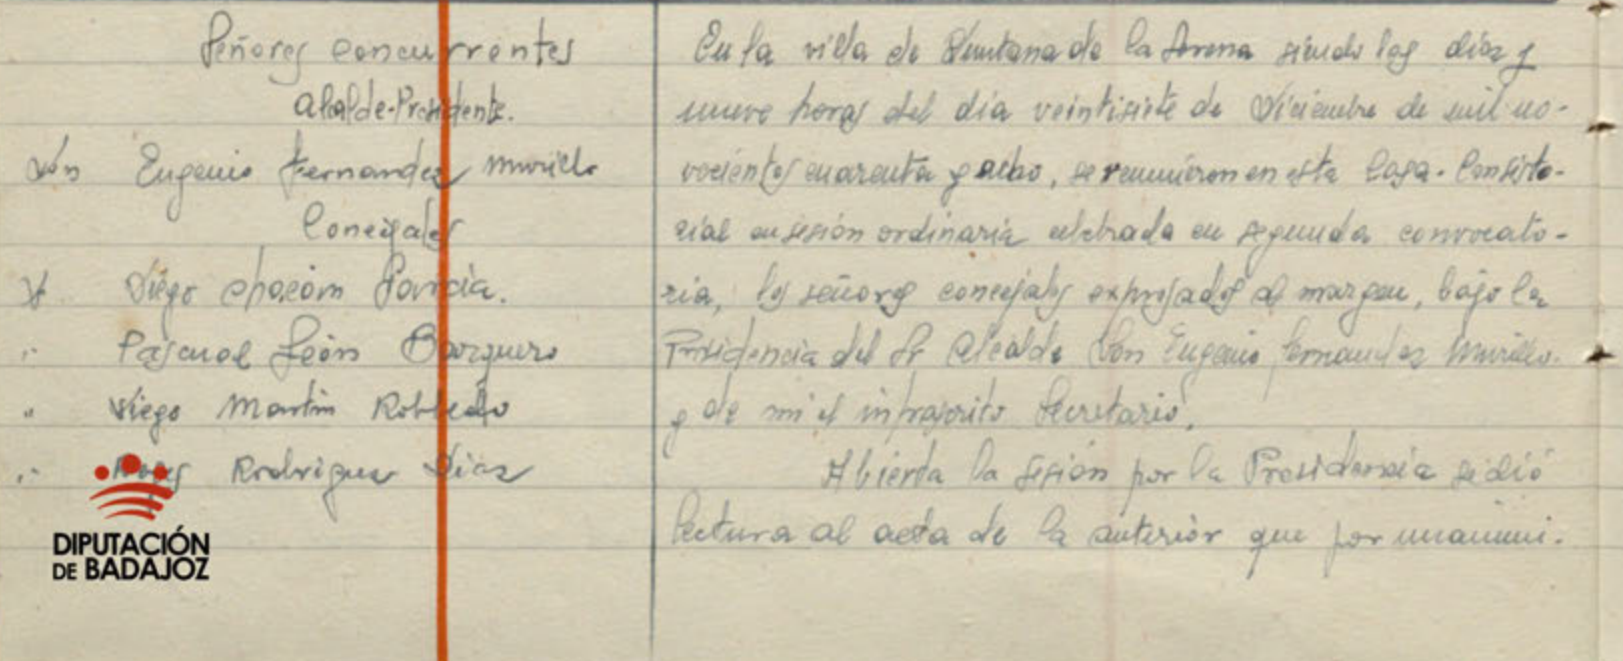 Señores concurrentes
Alcalde-Presidente.
Don Eugenio Fernandez Murillo
Concejales
Diego Chacón Paricia.
" Pascual León Barquero
" Diego Martin Robledo
" Rodriguez Díaz
DIPUTACIÓN
DE BADAJOZ
En la villa de Quintana de la Serena siendo las diez y
nueve horas del día veintisiete de Diciembre de mil no-
vecientos cuarenta y ocho, se reunieron en esta Casa-Consisto-
rial en sesión ordinaria celebrada en segunda convocato-
ria, los señores concejales expresados al margen, bajo la
Presidencia del Sr Alcalde Don Eugenio Fernandez Murillo.
y de mi el infrascrito Secretario.
Abierta la sesión por la Presidencia se dió
lectura al acta de la anterior que por unanimi-